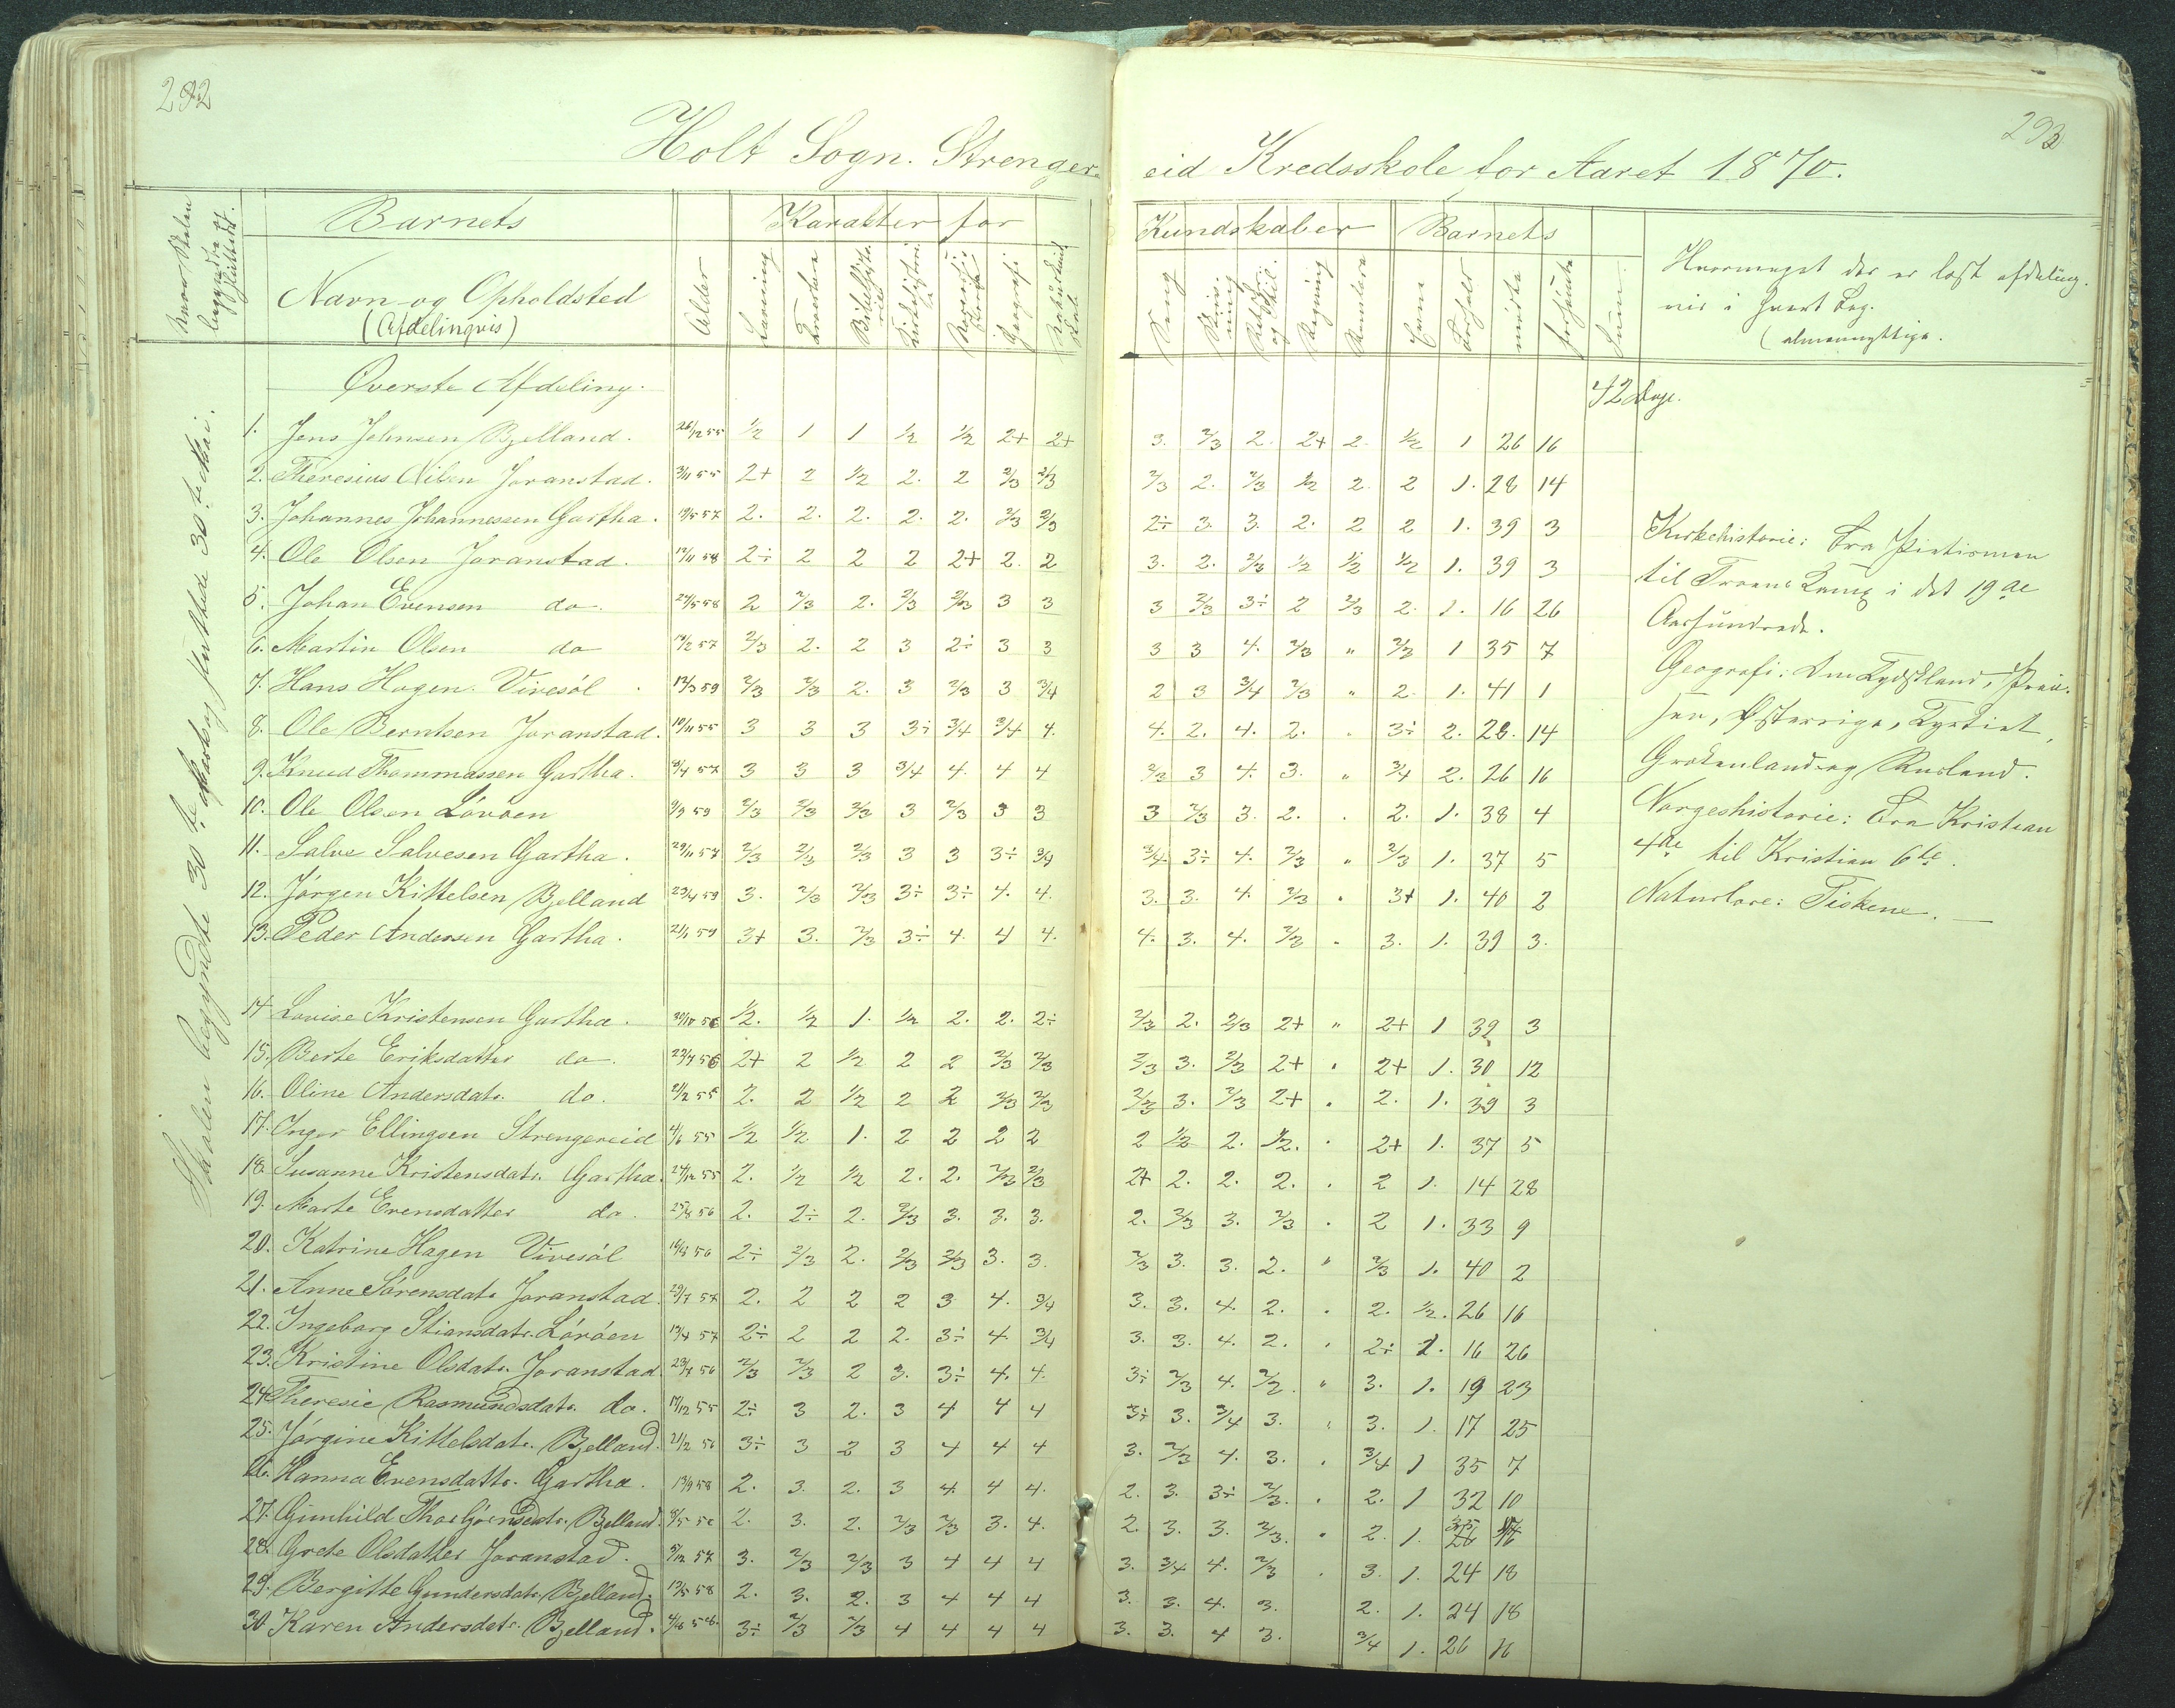 292
293
Holt Sogn. Strenger
eid Kredsskole for Aaret 1870.
Barnets
Karakter for
Kundskaber
Barnets
Navn og Opholdsted
(Afdelingvis)
Alder
Læsning
Geografi
Sang
Regning
Evne
Forhold
mødte
forsømte
Hvormeget der er læst afdeling-
vis i hvert Fag.
Øverste Afdeling.
42 Dage.
Skolen begyndte 30te
1. Jens Johnsen Bjelland. 26/12 55 1/2 1 1 1/2 1/2 2+ 2+ 3. 2/3 2. 2+ 2 1/2 1 26 16
2. Theresius Nilsen Joranstad. 3/11 55 2+ 2 1/2 2. 2 2/3 2/3 2/3 2. 2/3 1/2 2. 2 1. 28 14
3. Johannes Johannessen Gartha. 19/5 57 2. 2. 2. 2. 2. 2/3 2/3 2÷ 3. 3. 2. 2 2 1. 39 3
4. Ole Olsen Joranstad. 12/11 58 2÷ 2 2 2 2+ 2. 2 3. 2. 2/3 1/2 1/2 1/2 1. 39 3
5. Johan Evensen do. 24/5 58 2 2/3 2. 2/3 2/3 3 3 3 2/3 3÷ 2 2/3 2. 1. 16 26
6. Martin Olsen do 19/2 57 2/3 2. 2 3 2÷ 3 3 3 3 4. 2/3 " 2/3 1 35 7
7. Hans Hagen. Vivesöl 12/3 59 2/3 2/3 2. 3 2/3 3 3/4 2 3 3/4 2/3 " 2. 1. 41 1
8. Ole Berntsen Joranstad. 10/11 55 3 3 3 3÷ 3/4 3/4 4. 4. 2. 4. 2. " 3÷ 2. 28. 14
9. Knud Thommassen Gartha. 8/4 57 3 3 3 3/4 4. 4 4 2/3 3 4. 3. " 3/4 2. 26 16
10. Ole Olsen Löröen 9/3 59 2/3 2/3 2/3 3 2/3 3 3 3 2/3 3. 2. . 2. 1. 38 4
11. Salve Salvesen Gartha. 29/11 57 2/3 2/3 2/3 3 3 3÷ 3/4 3/4 3÷ 4. 2/3 " 2/3 1. 37 5
12. Jörgen Kittelsen Bjelland 23/4 59 3. 2/3 2/3 3÷ 3÷ 4. 4. 3. 3. 4. 2/3 . 3+ 1. 40 2
13. Peder Andersen Gartha. 21/1 59 3+ 3. 2/3 3÷ 4. 4 4. 4. 3. 4. 2/3 . 3. 1. 39 3.
14 Lovise Kristensen Gartha. 30/10 56 1/2. 1/2 1. 1/2 2. 2. 2÷ 2/3 2. 2/3 2+ " 2+ 1 39 3
15. Berte Eriksdatter do. 23/4 56 2+ 2 1/2 2 2 2/3 2/3 2/3 3. 2/3 2+ . 2+ 1. 30 12
16. Oline Andersdatr. do. 21/2 55 2. 2 1/2 2 2 2/3 2/3 2/3 3. 2/3 2+ . 2. 1. 39 3
17. Inger Ellingsen Strengereid 4/6 55 1/2 1/2 1. 2 2 2 2 2 1/2 2. 1/2. . 2+ 1. 37 5
18. Susanne Kristensdatr. Gartha. 24/12 55 2. 1/2 1/2 2. 2. 2/3 2/3 2+ 2. 2. 2. . 2 1. 14 28
19. Marte Evensdatter do. 25/8 56 2. 2÷ 2. 2/3 3. 3. 3. 2. 2/3 3. 2/3 . 2 1. 33 9
20. Katrine Hagen Vivesöl 56 2÷ 2/3 2. 2/3 2/3 3. 3. 2/3 3. 3. 2. " 2/3 1. 40 2
21. Anne Sörensdatr Joranstad. 29/7 57 2. 2 2 2 3 4. 3/4 3. 3. 4. 2. . 2. 1/2. 26 16
22. Ingeborg Stiansdatr. Löröen 19/4 57 2÷ 2 2 2. 3÷ 4. 3/4 3. 3. 4. 2. . 2÷ 1. 16 26
23. Kristine Olsdatr. Joranstad 23/4 56 2/3 2/3 2 3. 3÷ 4. 4. 3÷ 2/3 4. 2/3. " 3. 1. 19 23
24. Theresie Rasmundsdatr. do. 17/12 55 2÷ 3 2. 3 4 4 4 3÷ 3. 3/4 3. " 3. 1. 17 25
25. Jörgine Kittelsdatr. Bjelland. 21/2 56 3÷ 3 2 3 4 4 4 3. 2/3 4. 3. . 3/4 1 35 7
26. Hanna Evensdattr. Gartha. 13/9 58 2. 3. 2. 3 4 4 4. 2. 3. 3÷ 2/3. . 2. 1 32 10
27. Gunhild Thorbjörnsdatr. Bjelland. 2. 3. 2. 2/3 2/3 3. 4. 2. 3. 3. 2/3. " 2. 1.
28. Grete Olsdatter Joranstad. 5/12 57 3. 2/3 2/3 3 4 4 4 3. 3/4 4. 2/3 . 3. 1. 24 18
29. Bergitte Gundersdatr. Bjelland. 13/5 58 2. 3. 2. 3 4 4 4 3. 3. 4. 3. 2. 1. 24 18
30. Karen Andersdatr. Bjelland. 3÷ 2/3 2/3 4 4 4 4 3. 3. 4 3. 3/4 1. 26 16
Kirkehistorie: Fra Pietismen
til Troens Kamp i det 19de
Aarhundrede.
Geografi: Om Tydskland, Prøis-
sen, Østerrige, Tyrkiet,
Grækenland og Rusland.
Norgeshistorie: Fra Kristian
4de til Kristian 6te.
Naturlære: Fiskene. —